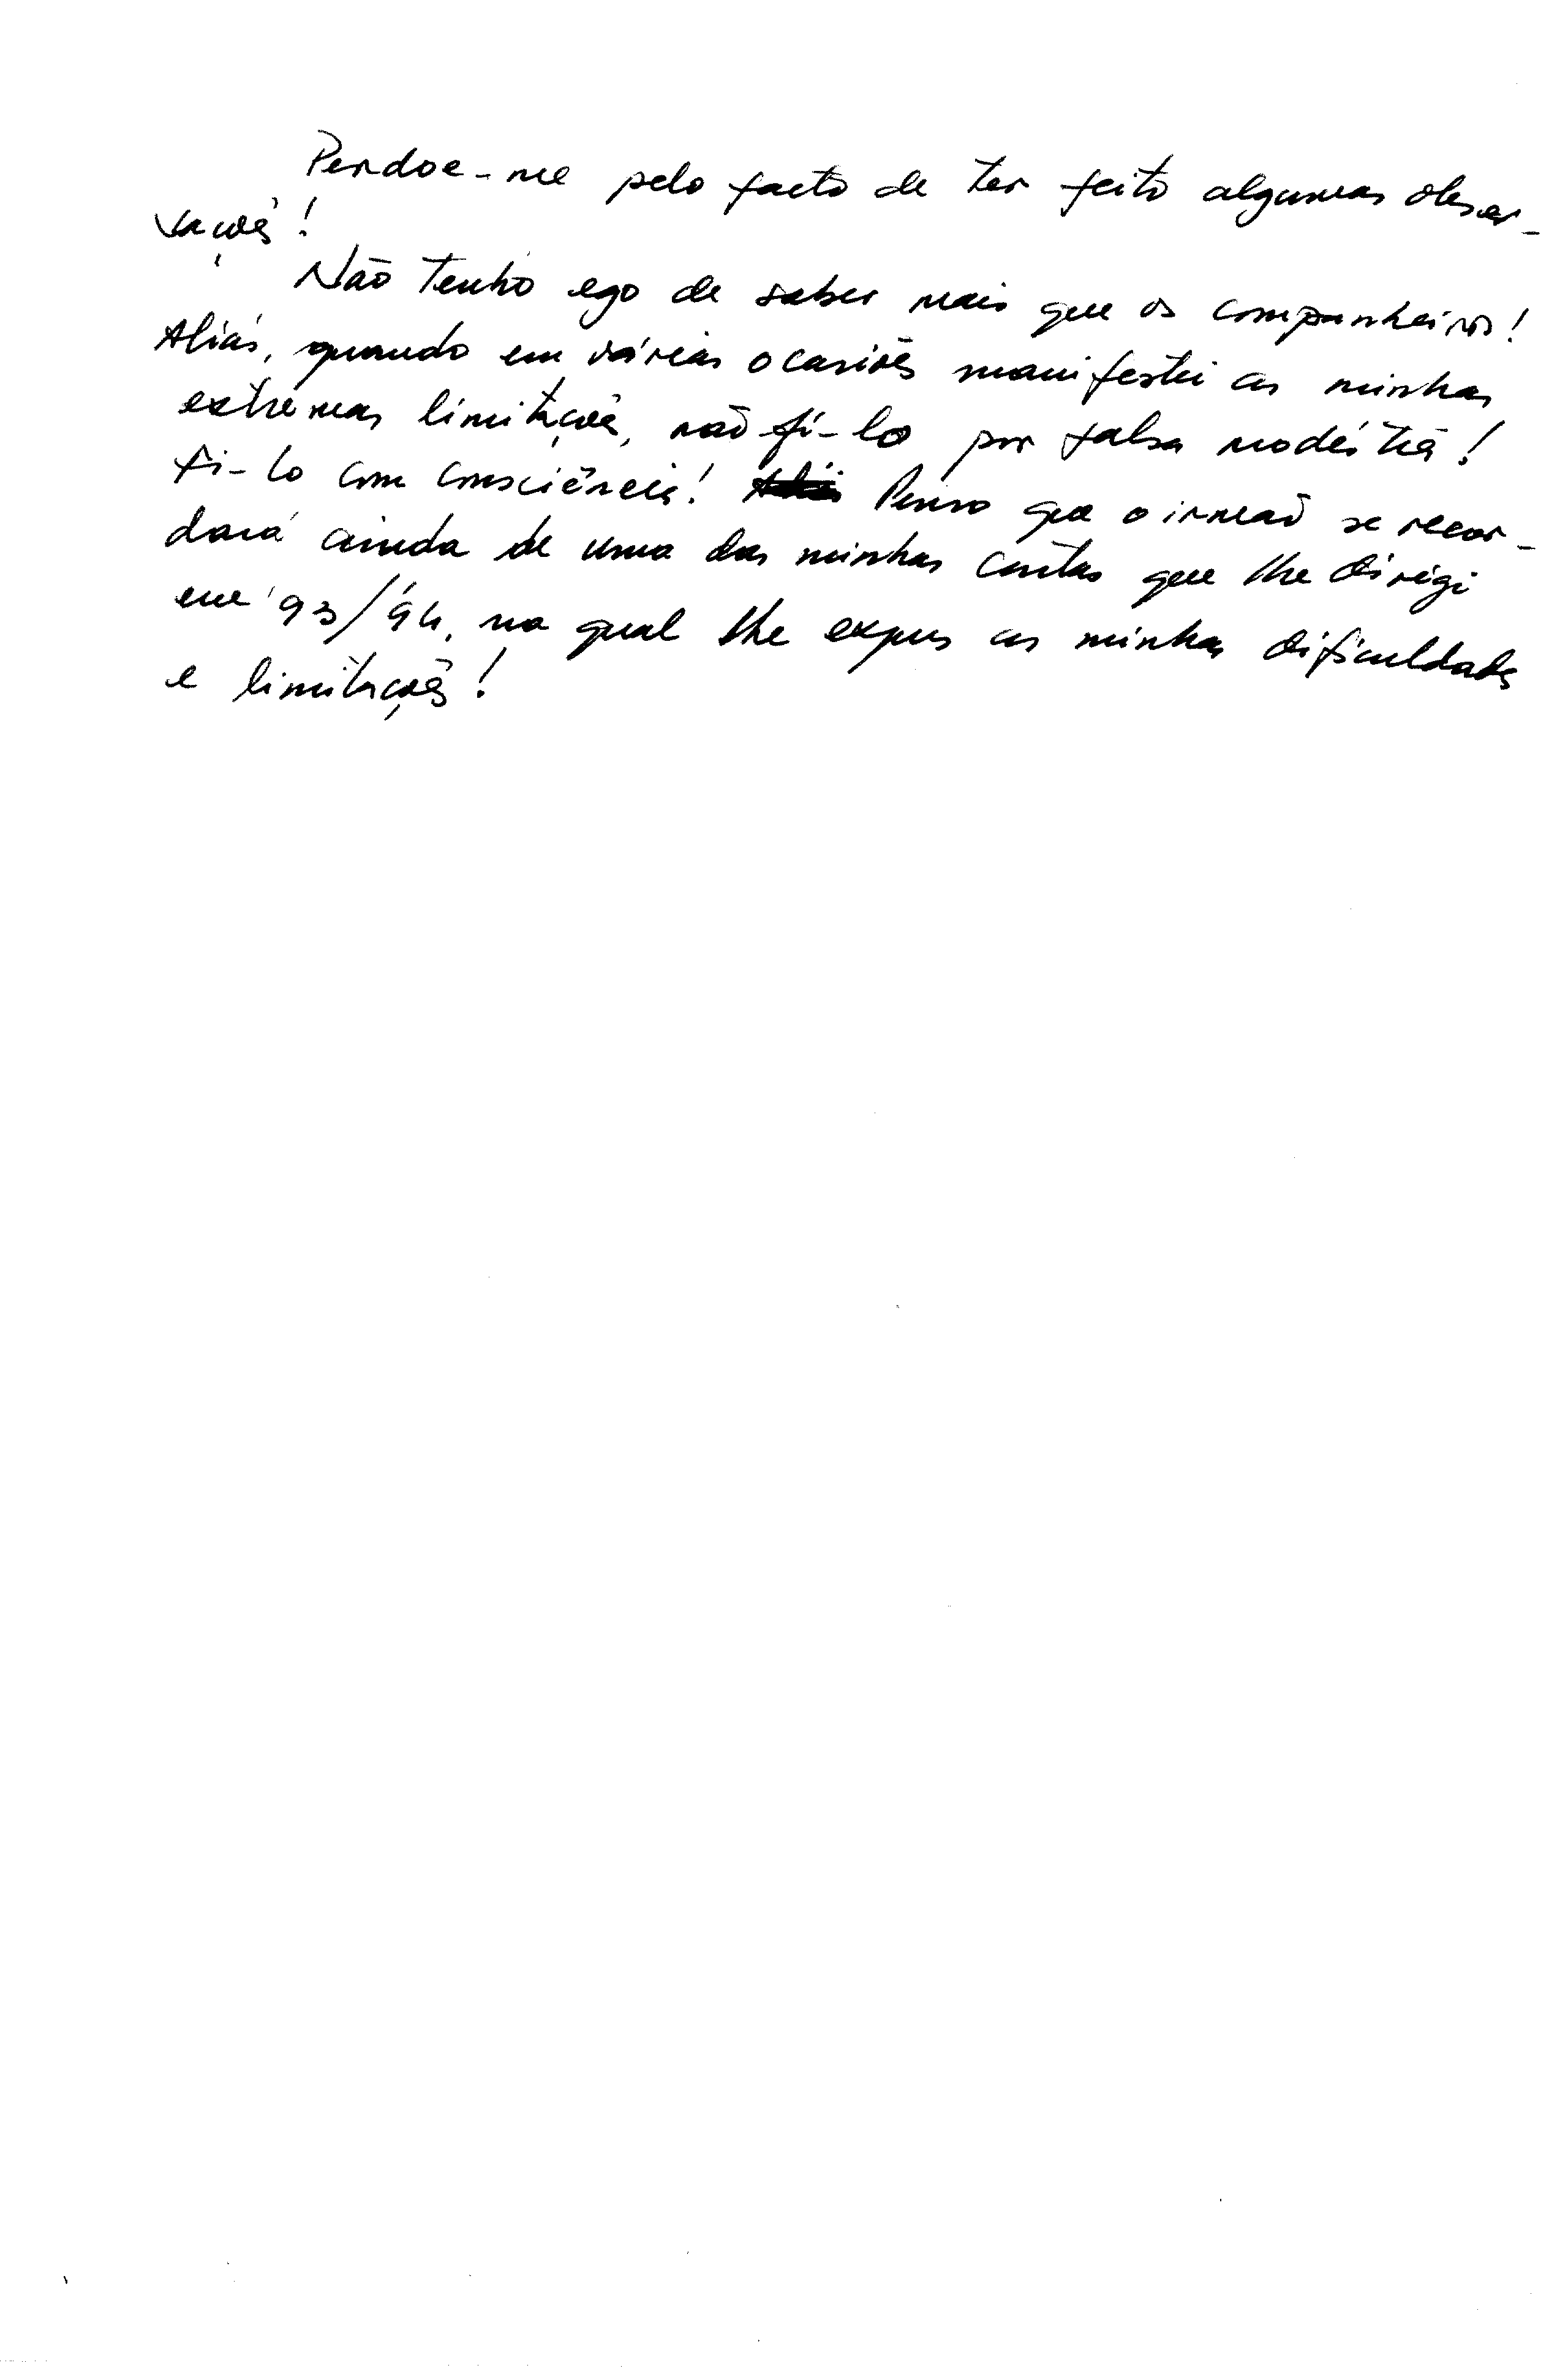 Perdoe-me pelo facto de ter feito algumas obser-
vações!
Não tenho ego de saber mais que os companheiros!
Aliás, quando em várias ocasiões manifestei as minhas
extremas limitações, não fi-lo por falsa modéstia!
Fi-lo com consciência! Penso que o irmão se recor-
dará ainda de uma das minhas cartas que lhe dirigi
em '93/'94, na qual lhe expus as minhas dificuldades
e limitações!